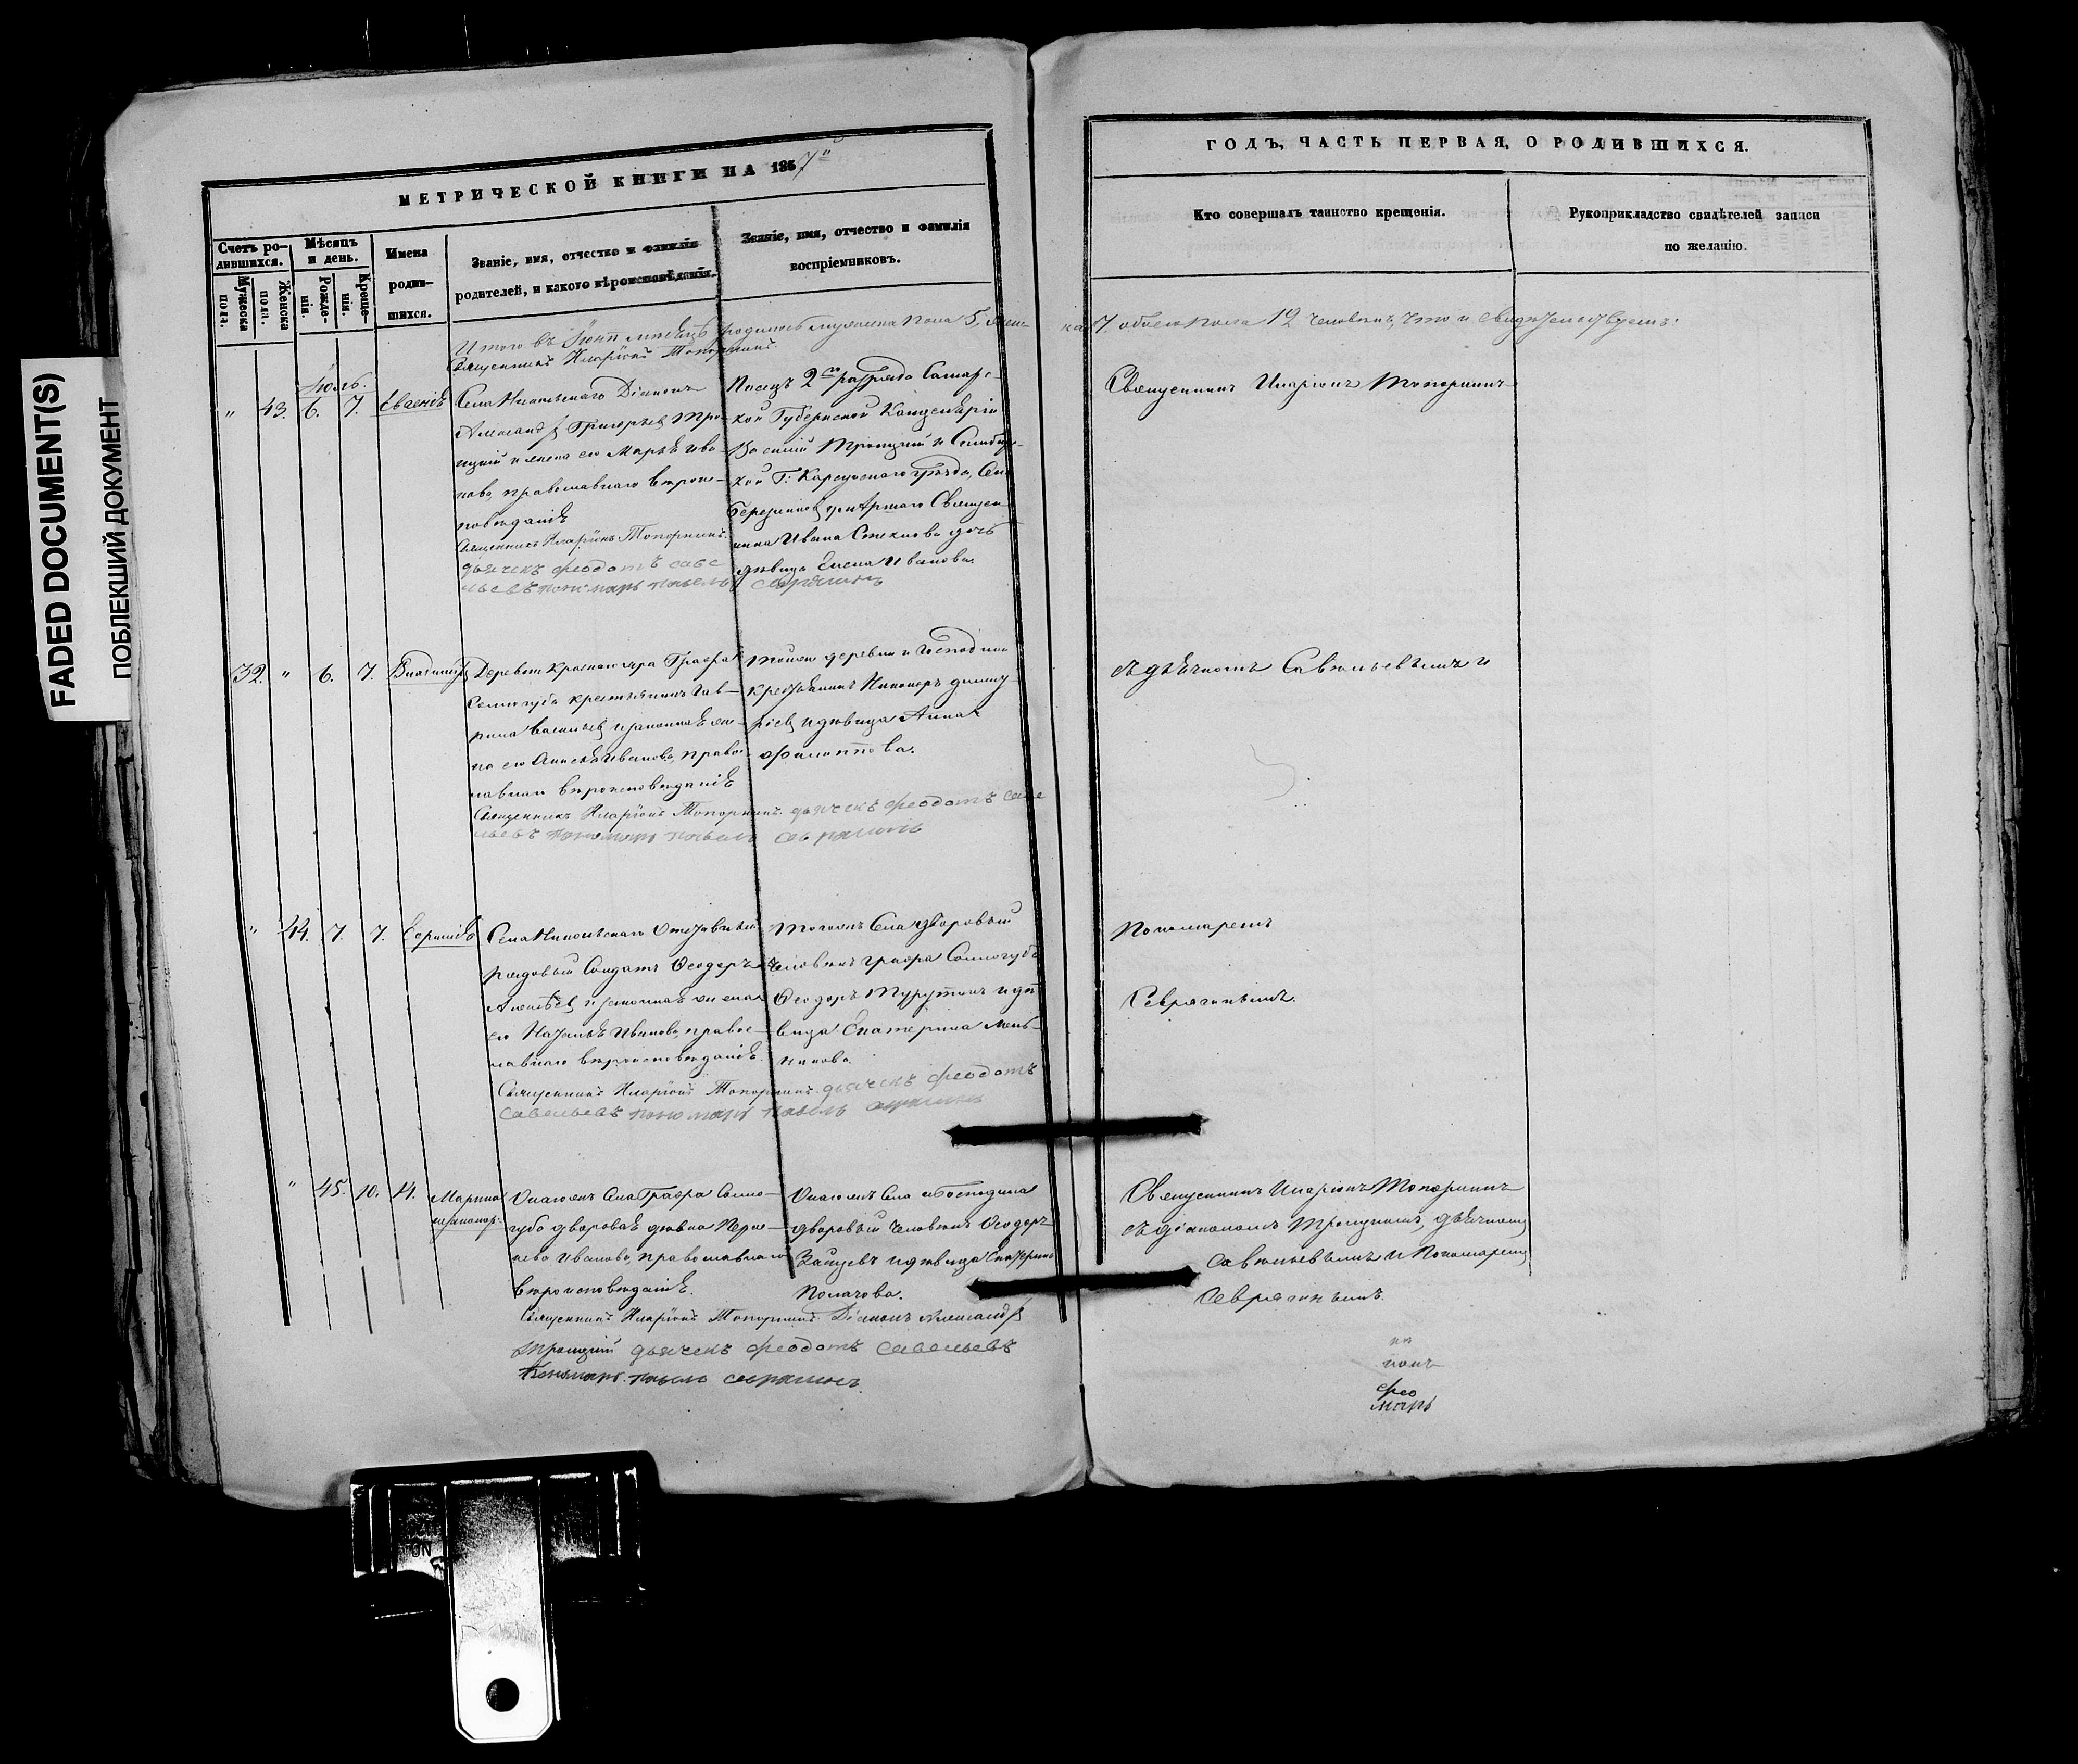 FADED DOCUMENT(S)
ПОБЛЕКШИЙ ДОКУМЕНТ
МЕТРИЧЕСКОЙ КНИГИ НА 1857
Счетъ ро-
дившихся.
Мужеска
пола.
Женска
пола.
Мѣсяцъ
и день.
Рожде-
нія.
Креще-
нія.
Имена
родив-
шихся.
Званіе, имя, отчество и фамилія
родителей, и какого вѣроисповѣданія.
Званіе, имя, отчество и фамилія
воспріемниковъ.
Итого въ Іюнѣ мѣсяцѣ родилось мужеска пола 5, жен
Священникъ Иларіонъ Топорнинъ
Іюль.
" 43. 6. 7. Евгенія
Села Никольскаго Діаконъ
Александръ Григорьевъ Тро-
ицкій и жена его Марья Ива-
нова, православнаго вѣроис-
повѣданія
Священникъ Иларіонъ Топорнинъ.
дьячекъ Феодотъ Саве
льевъ пономарь Павелъ
Писецъ 2го разряда Самарс-
кой Губернской Канцеляріи
Василій Троицкій и Симбирс-
кой Г: Карсунскаго уѣзда, Села
Священ-
ника Ивана Степанова дочь
дѣвица Елена Иванова.
32. " 6. 7. Владиміръ
Деревни Краснаго яра Графа
Сологуба крестьянинъ Гав-
рила Васильевъ и законная же-
на его Анисья Иванова, правос-
лавнаго вѣроисповѣданія
Священникъ Иларіонъ Топорнинъ. дьячекъ Феодотъ Саве
льевъ пономарь Павелъ Севрюгинъ
Тойже деревни и Господина
крестьянинъ Никаноръ Дмит-
ріевъ и дѣвица Анна
Филиппова.
" 44. 7. 7. Евгенія
Села Никольскаго Отставный
рядовый Солдатъ Ѳеодоръ
Алексѣевъ и законная жена
его Наталья Иванова, правос-
лавнаго вѣроисповѣданія.
Священникъ Иларіонъ Топорнинъ. дьячекъ Феодотъ
Савельевъ пономарь Павелъ
Тогожъ Села дворовый
человѣкъ графа Сологуба
Ѳеодоръ и дѣ-
вица Екатерина Мель-
никова.
" 45. 10. 14. Марина
незаконнор.
Онагожъ Села Графа Солло-
губа дворовая дѣвка Пела-
гея Иванова, православнаго
вѣроисповѣданія.
Священникъ Иларіонъ Топорнинъ Діаконъ Александръ
Троицкій дьячекъ Феодотъ Савельевъ
Пономарь Павелъ Севрюгинъ
Онагожъ Села и Господина
дворовый человѣкъ Ѳеодоръ
Зайцевъ и дѣвица Екатерина
Полачова.
ГОДЪ, ЧАСТЬ ПЕРВАЯ, О РОДИВШИХСЯ.
Кто совершалъ таинство крещенія.
Рукоприкладство свидѣтелей записи
по желанію.
ка 7. обоего пола 12 человѣкъ, что и свидѣтельствуемъ:
Священникъ Иларіонъ Топорнинъ
съ дьячкомъ Савельевымъ и
Пономаремъ
Севрюгинымъ.
Священникъ Иларіонъ Топорнинъ
съ діакономъ Троицкимъ, дьячкомъ
Савельевымъ и Пономаремъ
Севрюгинымъ.
фео
марь